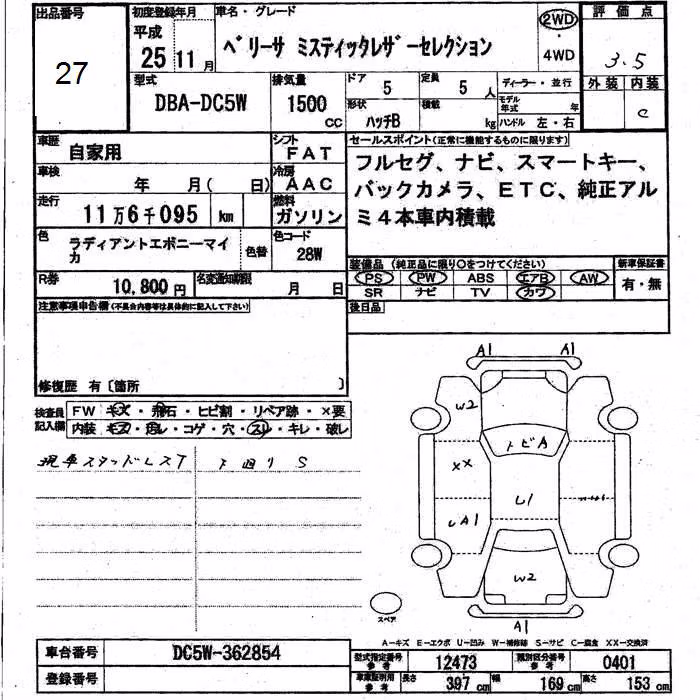 出品番号 初度登録年月 車名・グレード 評価点
27 平成 25年 11月 ベリーサ ミスティックレザーセレクション 2WD・4WD 3.5
外装 内装
C
型式 排気量 ドア 定員 ディーラー・並行
DBA-DC5W 1500 CC 5 5人 モデル年式 年
形状 積載
ハッチB kg ハンドル 左・右
車歴 自家用 シフト FAT セールスポイント(正常に機能するものに限ります)
車検 年 月( 日) 冷房 AAC フルセグ、ナビ、スマートキー、
走行 11万6千095 km 燃料 ガソリン バックカメラ、ETC、純正アル
ミ4本車内積載
色 ラディアントエボニーマイカ 色替 色コード 28W
装備品(純正品に限り○をつけてください) 新車保証書
R券 10,800円 名変通知期限 月 日 PS PW ABS エアB AW 有・無
SR ナビ TV カワ
注意事項申告欄(不具合内容等は具体的に記入して下さい) 後日品
修復歴 有〔箇所 〕
検査員記入欄 FW キズ・飛石・ヒビ割・リペア跡・×要
内装 キズ・汚レ・コゲ・穴・スリ・キレ・破レ
現車スタッドレスT 下回りS
A1 A1
W2
トビA
XX
U1
UA1
W2
A1
スペア
A-キズ E-エクボ U-凹み W-補修跡 S-サビ C-腐食 XX-交換済
車台番号 DC5W-362854 型式指定番号 参考 12473 類別区分番号 参考 0401
登録番号 車庫証明用 参考 長さ 397 cm 幅 169 cm 高さ 153 cm